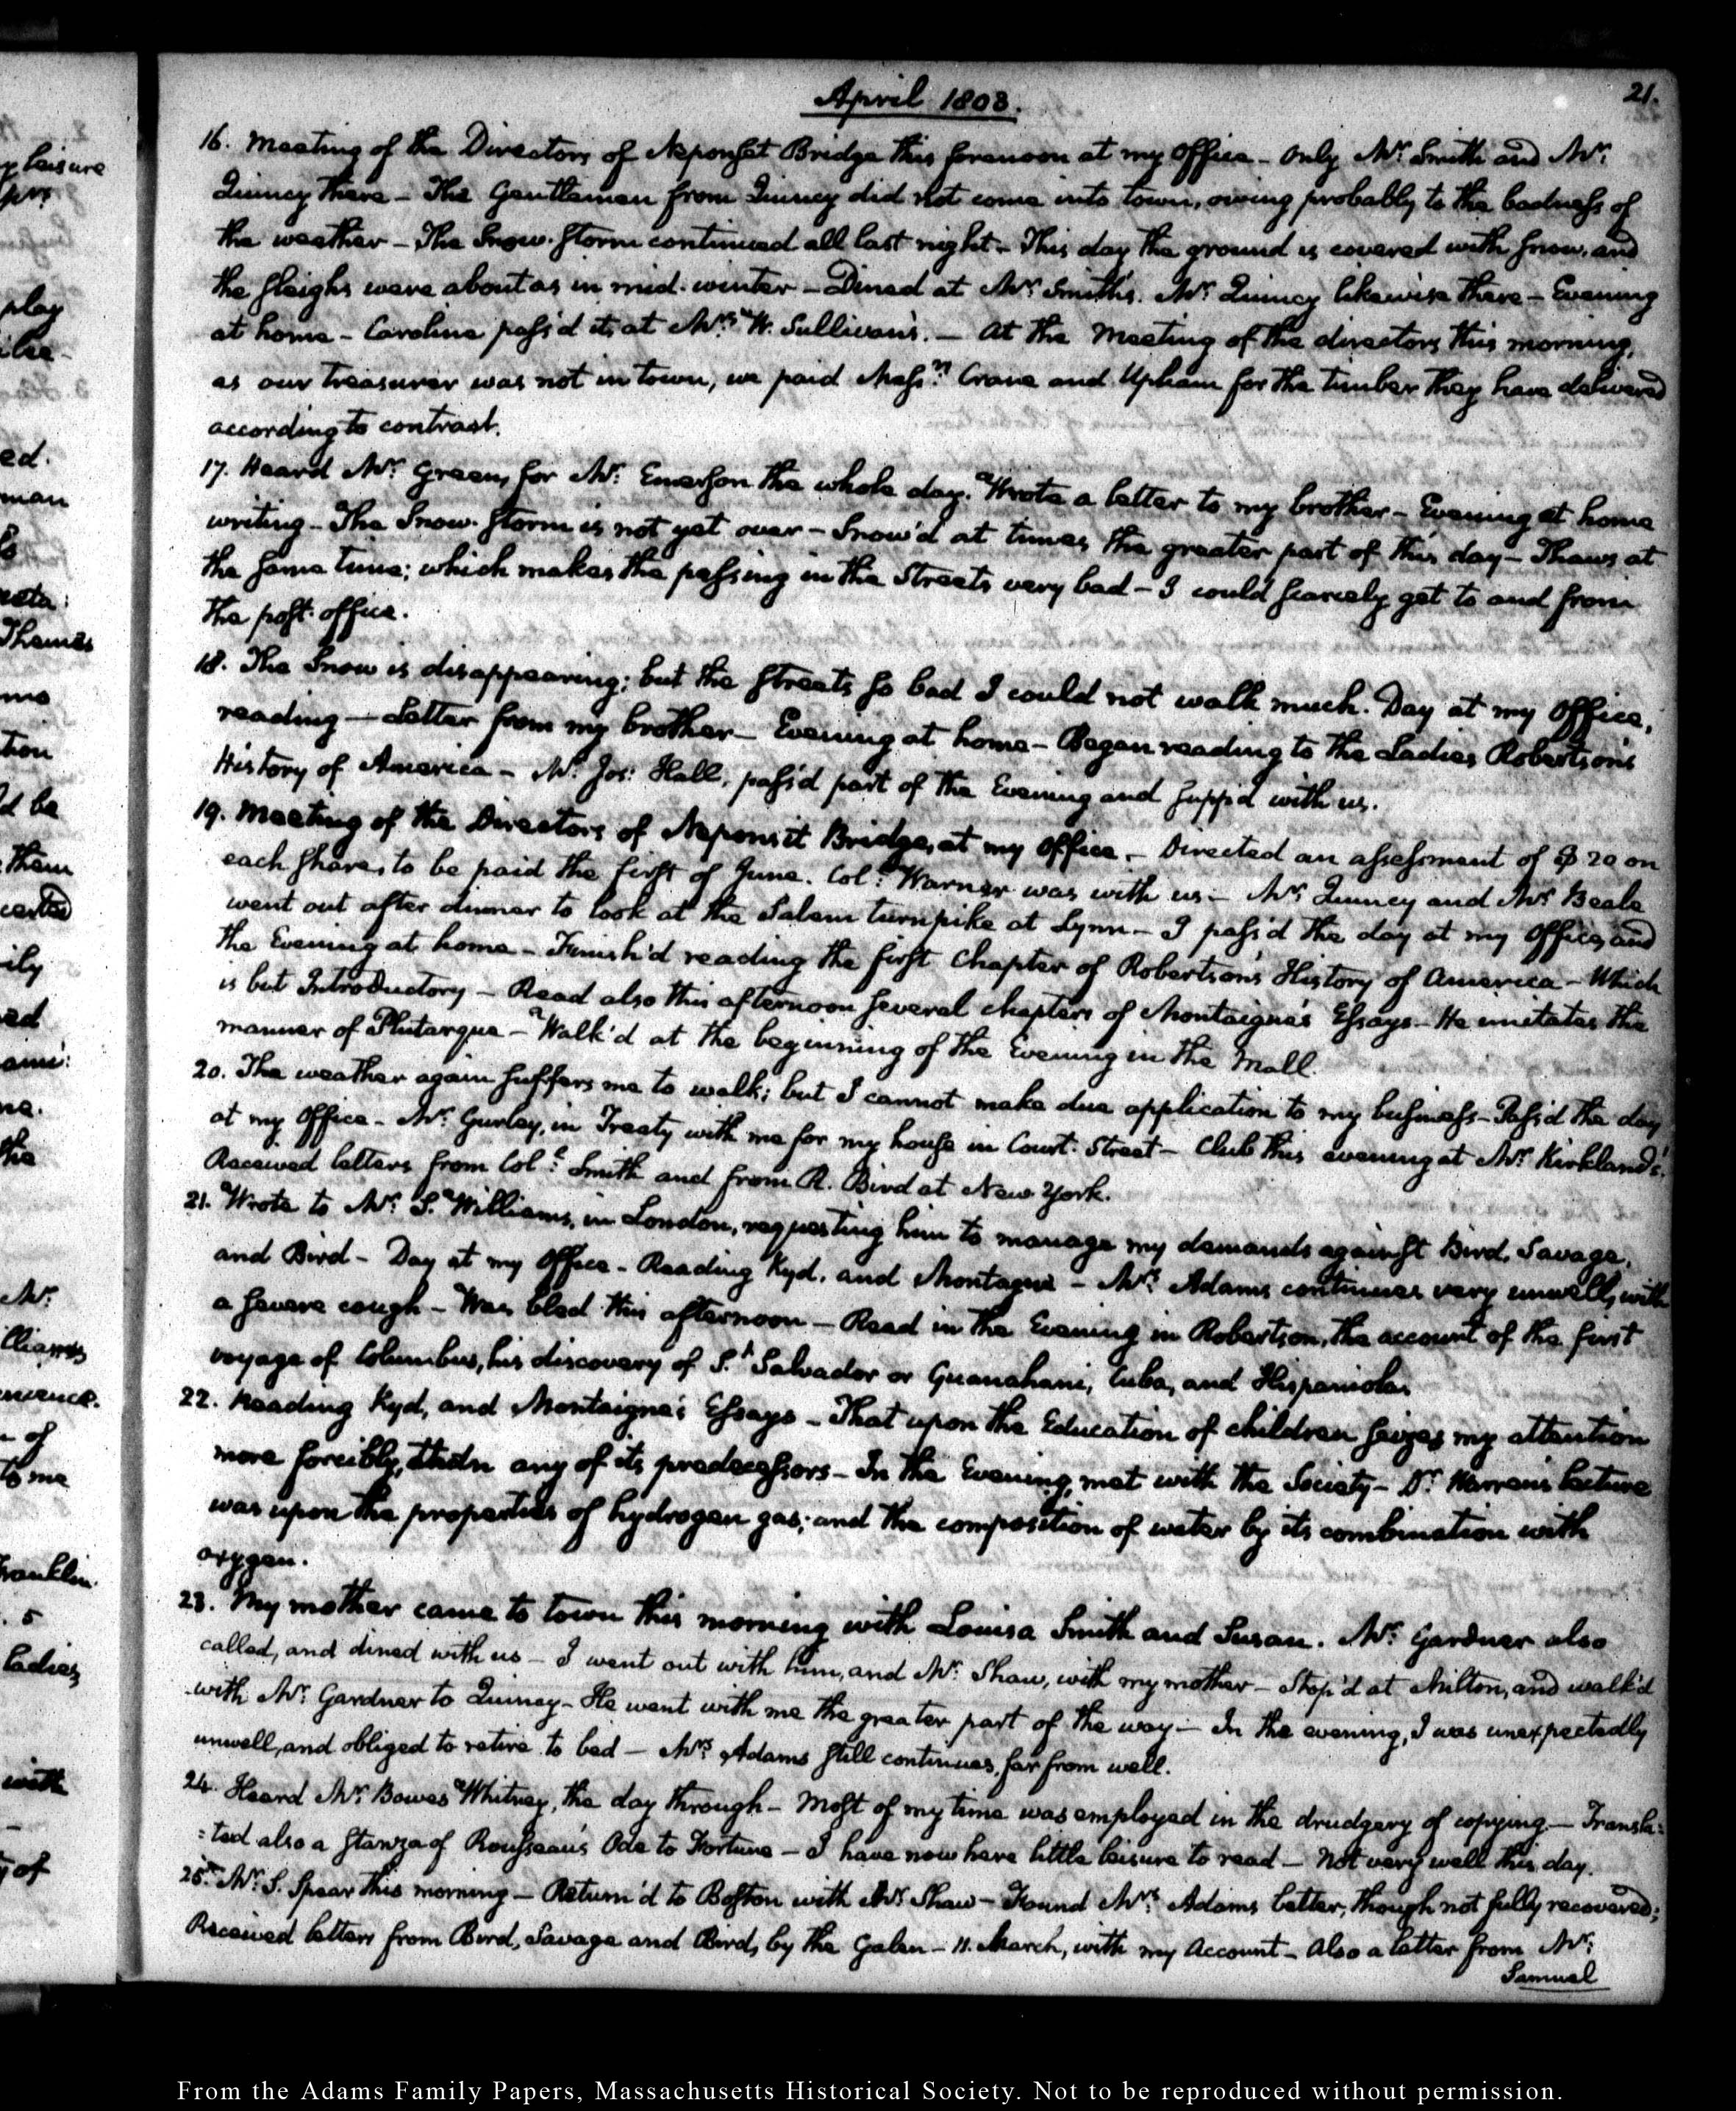 April 1803.
21.
16. Meeting of the Directors of Neponset Bridge this forenoon at my Office – Only Mr. Smith and Mr.
Quincy there – The Gentlemen from Quincy did not come into town, owing probably to the badness of
the weather – The Snow-storm continued all last night – This day the ground is covered with snow, and
the sleighs were about as in mid-winter – Dined at Mr. Smith's. Mr. Quincy likewise there – Evening
at home – Caroline pass'd it at Mrs. W. Sullivan's. – At the Meeting of the directors this morning,
as our treasurer was not in town, we paid Messrs. Crane and Upham for the timber they have delivered
according to contract.
17. Heard Mr. Green, for Mr. Emerson the whole day. Wrote a letter to my brother – Evening at home
writing – The Snow-storm is not yet over – Snow'd at times the greater part of this day – Thaws at
the same time; which makes the passing in the Streets very bad – I could scarcely get to and from
the post-office.
18. The Snow is disappearing; but the streets so bad I could not walk much. Day at my Office,
reading – Letter from my brother – Evening at home – Began reading to the Ladies Robertson's
History of America – Mr. Jos: Hall, pass'd part of the Evening and supp'd with us.
19. Meeting of the Directors of Neponsit Bridge, at my Office. – Directed an assessment of $20 on
each share, to be paid the first of June. Coll. Warner was with us – Mr. Quincy and Mr. Beale
went out after dinner to look at the Salem turnpike at Lynn – I pass'd the day at my Office, and
the Evening at home – Finish'd reading the first Chapter of Robertson's History of America – Which
is but Introductory – Read also this afternoon several chapters of Montaigne's Essays – He imitates the
manner of Plutarque – Walk'd at the beginning of the Evening in the Mall.
20. The weather again suffers me to walk; but I cannot make due application to my business – Pass'd the day
at my Office – Mr. Gurley, in Treaty with me for my house in Court-Street – Club this evening at Mr. Kirkland's.
Received letters from Coll. Smith and from R. Bird at New York.
21. Wrote to Mr. S. Williams, in London, requesting him to manage my demands against Bird, Savage,
and Bird – Day at my Office – Reading Kyd, and Montagne – Mrs. Adams continues very unwell, with
a severe cough – Was bled this afternoon – Read in the Evening in Robertson, the account of the first
voyage of Columbus, his discovery of St. Salvador or Guanahani, Cuba, and Hispaniola.
22. Reading Kyd, and Montaigne's Essays – That upon the Education of children seizes my attention
more forcibly, than any of its predecessors – In the Evening, met with the Society – Dr. Warren's lecture
was upon the properties of hydrogen gas; and the composition of water by its combination with
oxygen.
23. My mother came to town this morning with Louisa Smith and Susan. Mr. Gardner also
called, and dined with us – I went out with him, and Mr. Shaw, with my mother – Stop'd at Milton, and walk'd
with Mr. Gardner to Quincy – He went with me the greater part of the way – In the evening, I was unexpectedly
unwell, and obliged to retire to bed – Mrs. Adams still continues, far from well.
24. Heard Mr. Bowes Whitney, the day through – Most of my time was employed in the drudgery of copying. – Transla-
:ted also a stanza of Rousseau's Ode to Fortune – I have now here little leisure to read – Not very well this day.
25. Mr. S. Spear this morning – Return'd to Boston with Mr. Shaw – Found Mrs. Adams better, though not fully recovered;
Received letters from Bird, Savage and Bird, by the Galen – 11. March, with my Account – Also a letter from Mr.
Samuel
From the Adams Family Papers, Massachusetts Historical Society. Not to be reproduced without permission.